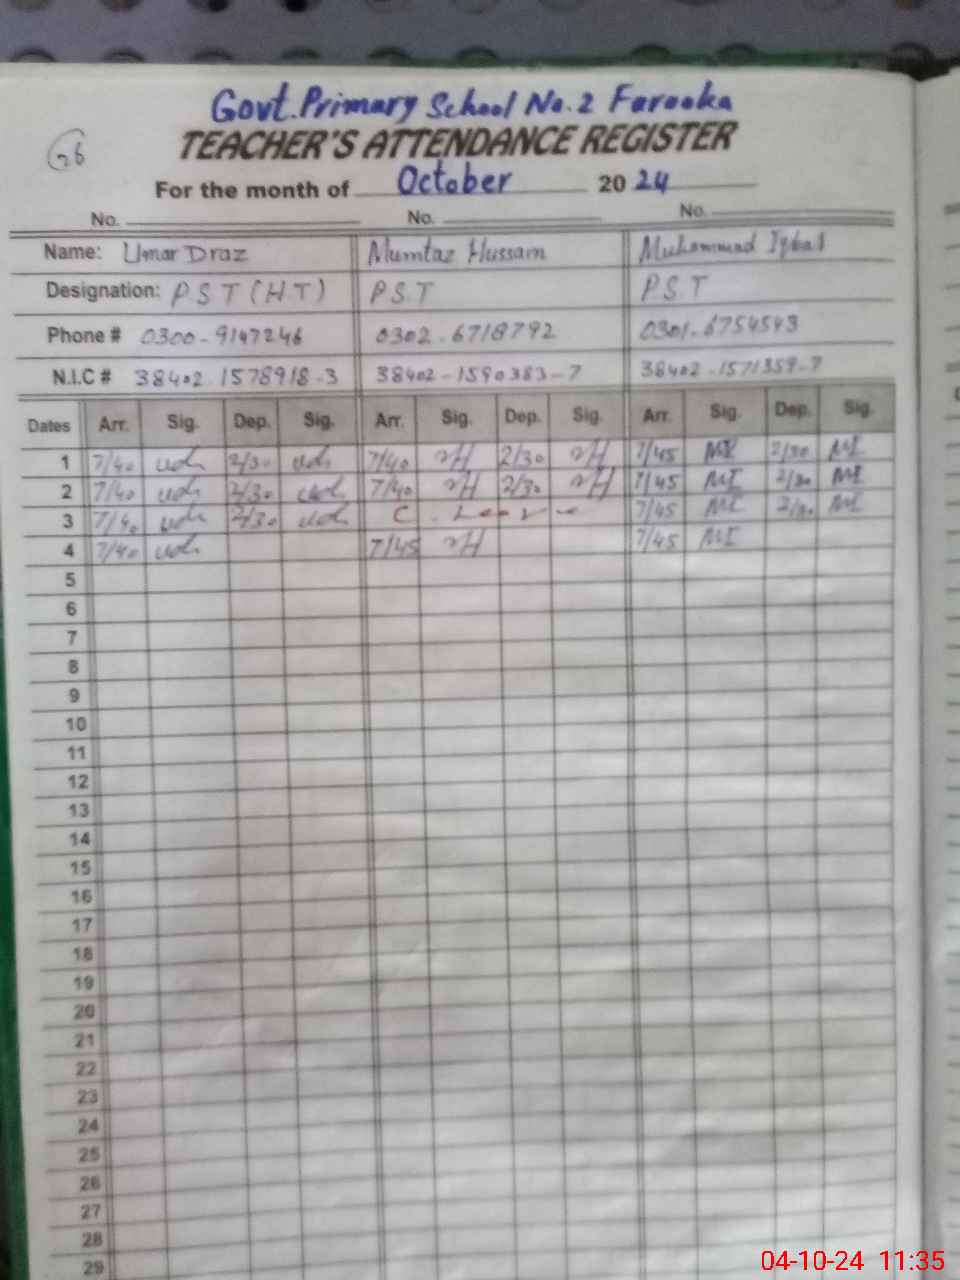 Govt. Primary School No. 2 Farooka
TEACHER'S ATTENDANCE REGISTER
For the month of October 2024
No. No. No.
Name: Umar Draz Mumtaz Hussain Muhammad Iqbal
Designation: PST (HT) PST PST
Phone # 0300-9147246 0302-6718792 0301-6754543
N.I.C # 38402-1578918-3 38402-1590383-7 38402-1571359-7
Dates Arr. Sig. Dep. Sig. Arr. Sig. Dep. Sig. Arr. Sig. Dep. Sig.
1 7/40 2/30 7/40 2/30 7/45 MI 2/30 MI
2 7/40 2/30 7/40 2/30 7/45 MI 2/30 MI
3 7/40 2/30 C. Leave 7/45 MI 2/30 MI
4 7/40 7/45 7/45 MI
5
6
7
8
9
10
11
12
13
14
15
16
17
18
19
20
21
22
23
24
25
26
27
28
29
04-10-24 11:35